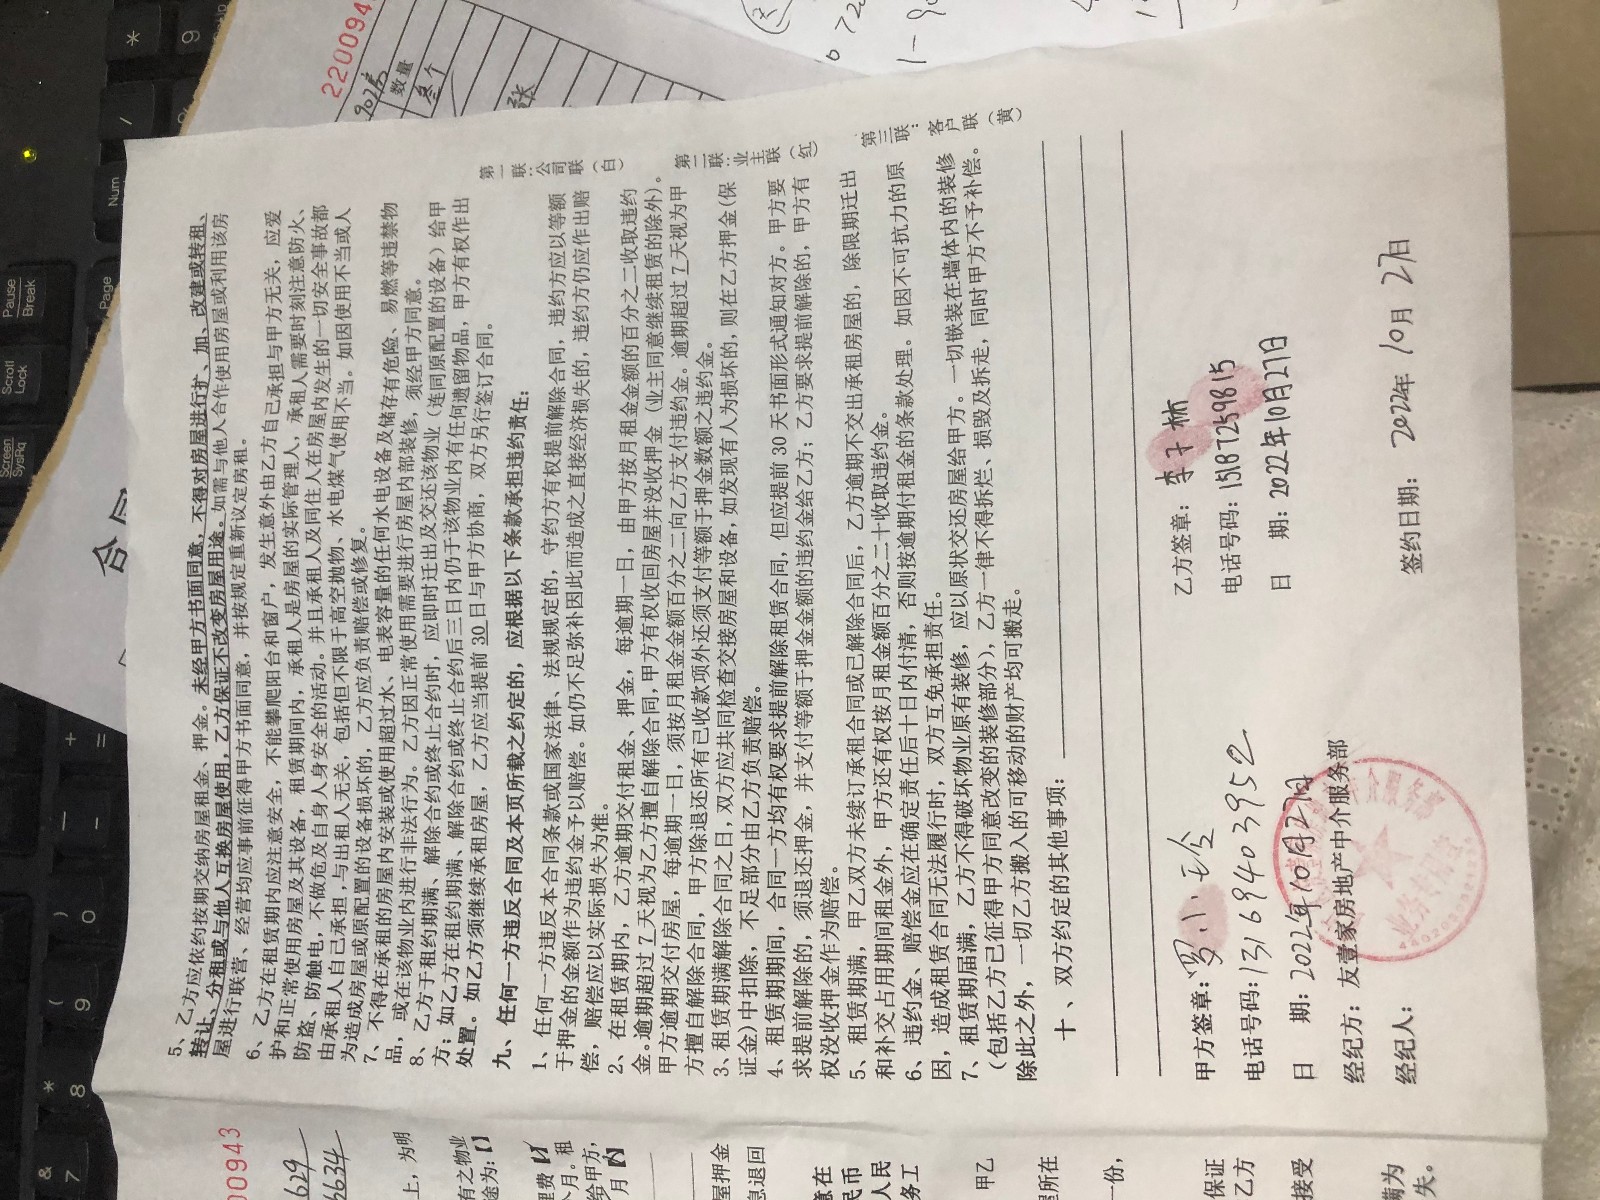 5、乙方应依约按期交纳房屋租金、押金。未经甲方书面同意，不得对房屋进行扩、加、改建或转租、
转让、分租或与他人互换房屋使用，乙方保证不改变房屋用途。如需与他人合作使用房屋或利用该房
屋进行联营、经营均应事前征得甲方书面同意，并按规定重新议定房租。
6、乙方在租赁期内应注意安全，不能攀爬阳台和窗户，发生意外由乙方自己承担与甲方无关，应爱
护和正常使用房屋及其设备，租赁期间内，承租人是房屋的实际管理人，承租人需要时刻注意防火、
防盗、防触电，不做危及自身人身安全的活动。并且承租人及同住人在房屋内发生的一切安全事故都
由承租人自己承担，与出租人无关，包括但不限于高空抛物、水电煤气使用不当。如因使用不当或人
为造成房屋或原配置的设备损坏的，乙方应负责赔偿或修复。
7、不得在承租的房屋内安装或使用超过水、电表容量的任何水电设备及储存有危险、易燃等违禁物
品，或在该物业内进行非法行为。乙方因正常使用需要进行房屋内部装修，须经甲方同意。
8、乙方于租约期满、解除合约或终止合约时，应即时迁出及交还该物业（连同原配置的设备）给甲
方；如乙方在租约期满、解除合约或终止合约后三日内仍于该物业内有任何遗留物品，甲方有权作出
处置。如乙方须继续承租房屋，乙方应当提前30日与甲方协商，双方另行签订合同。
九、任何一方违反合同及本页所载之约定的，应根据以下条款承担违约责任：
1、任何一方违反本合同条款或国家法律、法规规定的，守约方有权提前解除合同，违约方应以等额
于押金的金额作为违约金予以赔偿。如仍不足弥补因此而造成之直接经济损失的，违约方仍应作出赔
偿，赔偿应以实际损失为准。
2、在租赁期内，乙方逾期交付租金、押金，每逾期一日，由甲方按月租金金额的百分之二收取违约
金。逾期超过7天视为乙方擅自解除合同，甲方有权收回房屋并没收押金（业主同意继续租赁的除外）。
甲方逾期交付房屋，每逾期一日，须按月租金金额百分之二向乙方支付违约金。逾期超过7天视为甲
方擅自解除合同，甲方除退还所有已收款项外还须支付等额于押金数额之违约金。
3、租赁期满解除合同之日，双方应共同检查交接房屋和设备，如发现有人为损坏的，则在乙方押金(保
证金)中扣除，不足部分由乙方负责赔偿。
4、租赁期期间，合同一方均有权要求提前解除租赁合同，但应提前30天书面形式通知对方。甲方要
求提前解除的，须退还押金，并支付等额于押金金额的违约金给乙方；乙方要求提前解除的，甲方有
权没收押金作为赔偿。
5、租赁期满，甲乙双方未续订承租合同或已解除合同后，乙方逾期不交出承租房屋的，除限期迁出
和补交占用期间租金外，甲方还有权按月租金额百分之二十收取违约金。
6、违约金、赔偿金应在确定责任后十日内付清，否则按逾期付租金的条款处理。如因不可抗力的原
因，造成租赁合同无法履行时，双方互免承担责任。
7、租赁期届满，乙方不得破坏物业原有装修，应以原状交还房屋给甲方。一切嵌装在墙体内的装修
（包括乙方已征得甲方同意改变的装修部分），乙方一律不得拆烂、损毁及拆走，同时甲方不予补偿。
除此之外，一切乙方搬入的可移动的财产均可搬走。
十、双方约定的其他事项：
甲方签章：罗小玲
乙方签章：李子林
电话号码：13169403952
电话号码：15187259815
日 期：2022年10月27日
日 期：2022年10月27日
经纪方：友壹家房地产中介服务部
经纪人：
签约日期： 2022年 10月 27日
第一联：公司联（白）
第二联：业主联（红）
第三联：客户联（黄）
中介服务部
业务专用章
00943
629
6634
上，为明
有之物业
途为：【】
个月。租
给甲方，
月
屋押金
息退回
意在
民币
人民
务工
甲乙
屋所在
一份，
保证
乙方
接受
满为
失。
220094
902房
数量
叁个
张
合同
Screen
SysRq
Scroll
Lock
Pause
Break
Num
Page
/
*
9
&
7
*
8
(
9
)
0